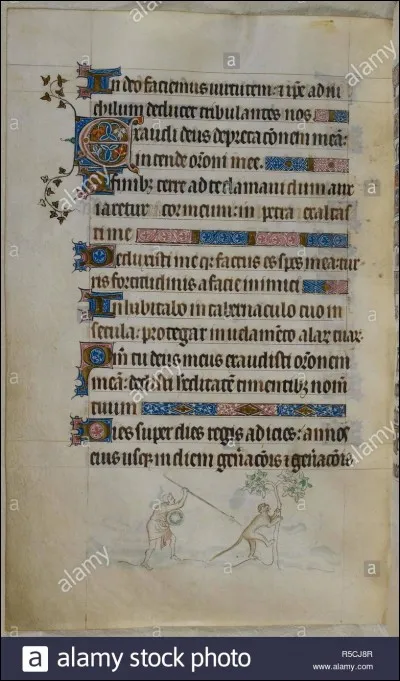 In deo faciemus uirtutem: ⁊ ip̄e ad ni
chilum deducet tribulantes nos
Exaudi deus depreca c̄onem meā:
intende or̄oni mee.
A finibꝫ terre ad te clamaui dum anx
iaretur cor meum: in petra exaltas
ti me
Deduxisti me qr factus es spes mea: tur
ris fortitudinis a facie inimici
Inhabitabo in tabernaculo tuo in
secula: protegar in uelam̄eto alaꝝ tuaꝝ
Qm̄ tu deus meus exaudisti or̄onem
meā: dedisti h̄editatē timentibꝫ nom̄
tuum
Dies super dies regis adicies: annos
eius usqꝫ in diem gen̄acōis ⁊ gen̄acōis
alamy stock photo
R5CJ8R
www.alamy.com